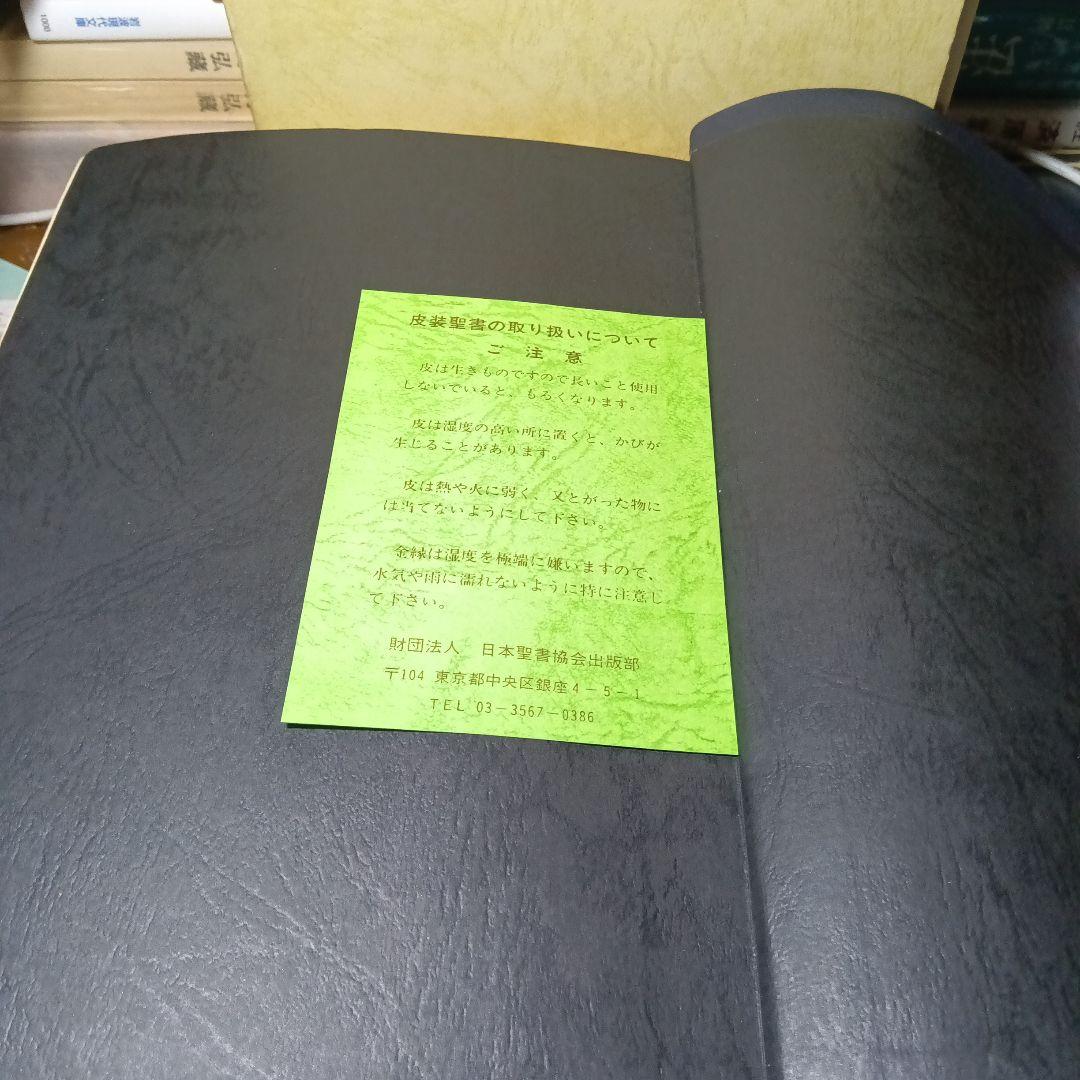 岩波現代文庫
1000
弘蔵
弘蔵
皮装聖書の取り扱いについて
ご注意
皮は生きものですので長いこと使用
しないでいると、もろくなります。
皮は湿度の高い所に置くと、かびが
生じることがあります。
皮は熱や火に弱く、又とがった物に
は当てないようにして下さい。
金縁は湿度を極端に嫌いますので、
水気や雨に濡れないように特に注意し
て下さい。
財団法人 日本聖書協会出版部
〒104 東京都中央区銀座4-5-1
TEL 03-3567-0386